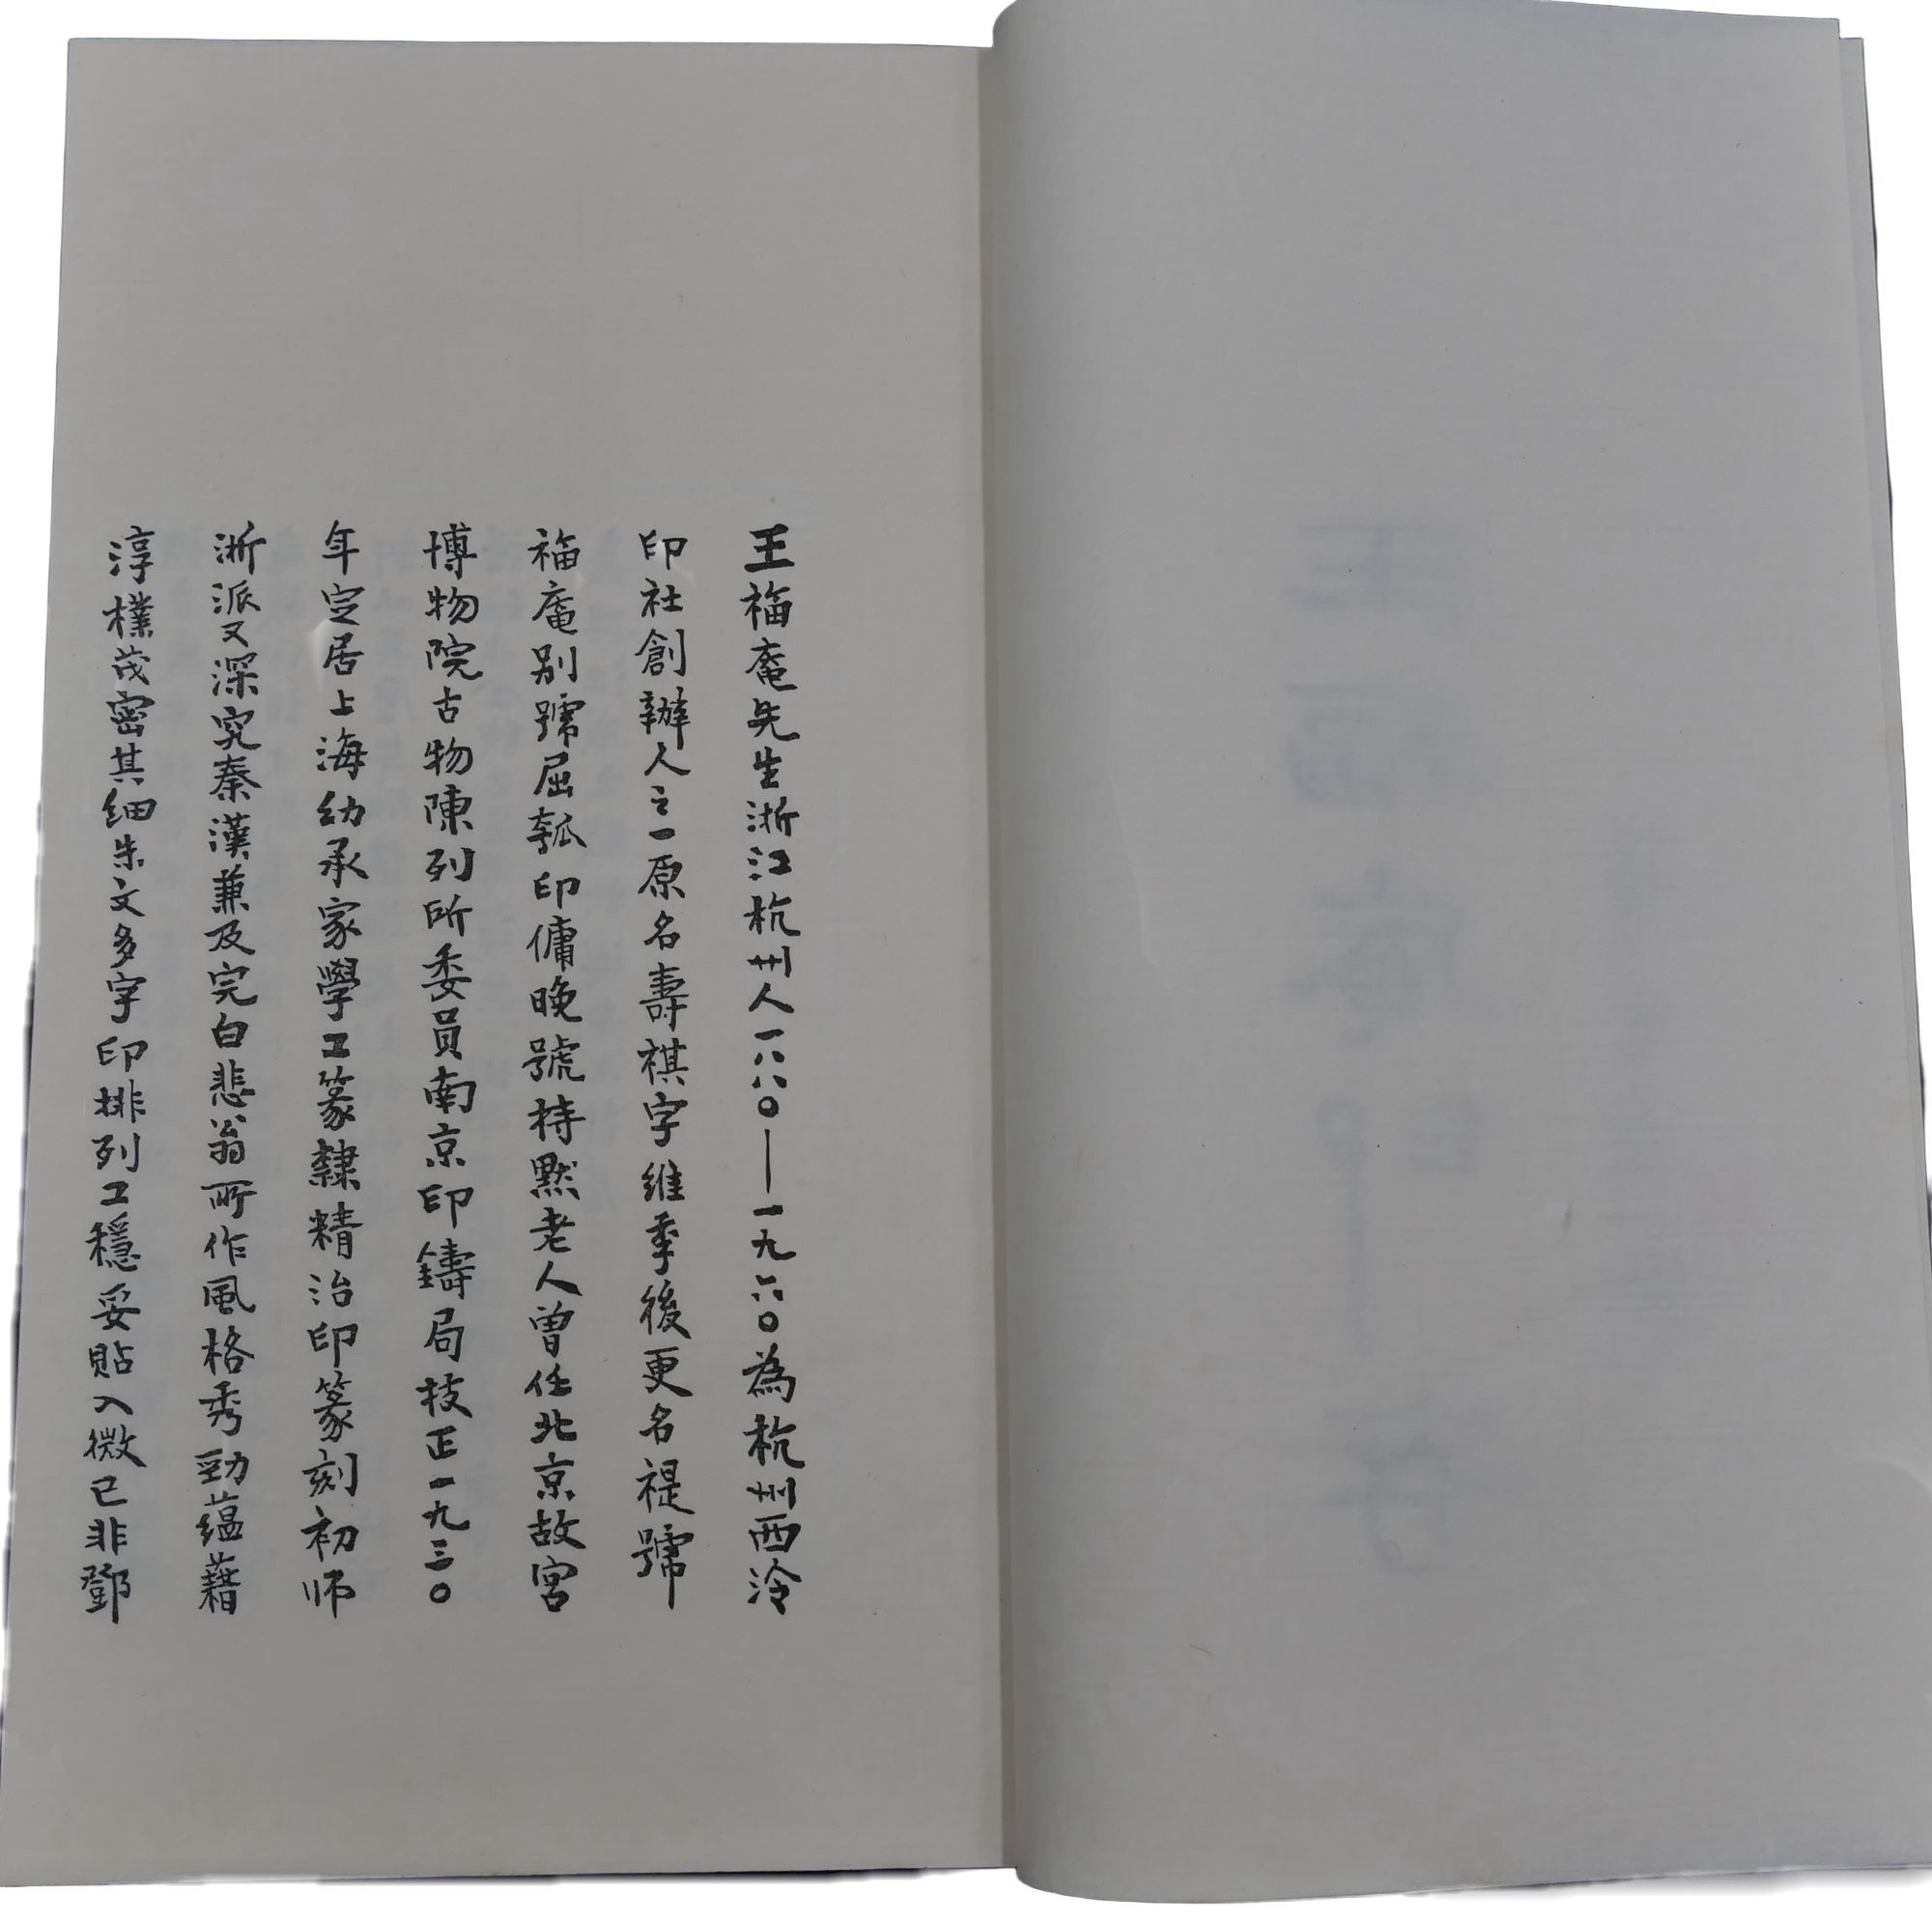 王福庵先生浙江杭州人一八八〇—一九六〇為杭州西泠
印社創辦人之一原名壽祺字維季後更名禔號
福庵別號屈瓠印傭晚號持默老人曾任北京故宮
博物院古物陳列所委員南京印鑄局技正一九三〇
年定居上海幼承家學工篆隸精治印篆刻初师
浙派又深究秦漢兼及完白悲翁所作風格秀勁蘊藉
淳樸茂密其细朱文多字印排列工穩妥貼入微已非鄧